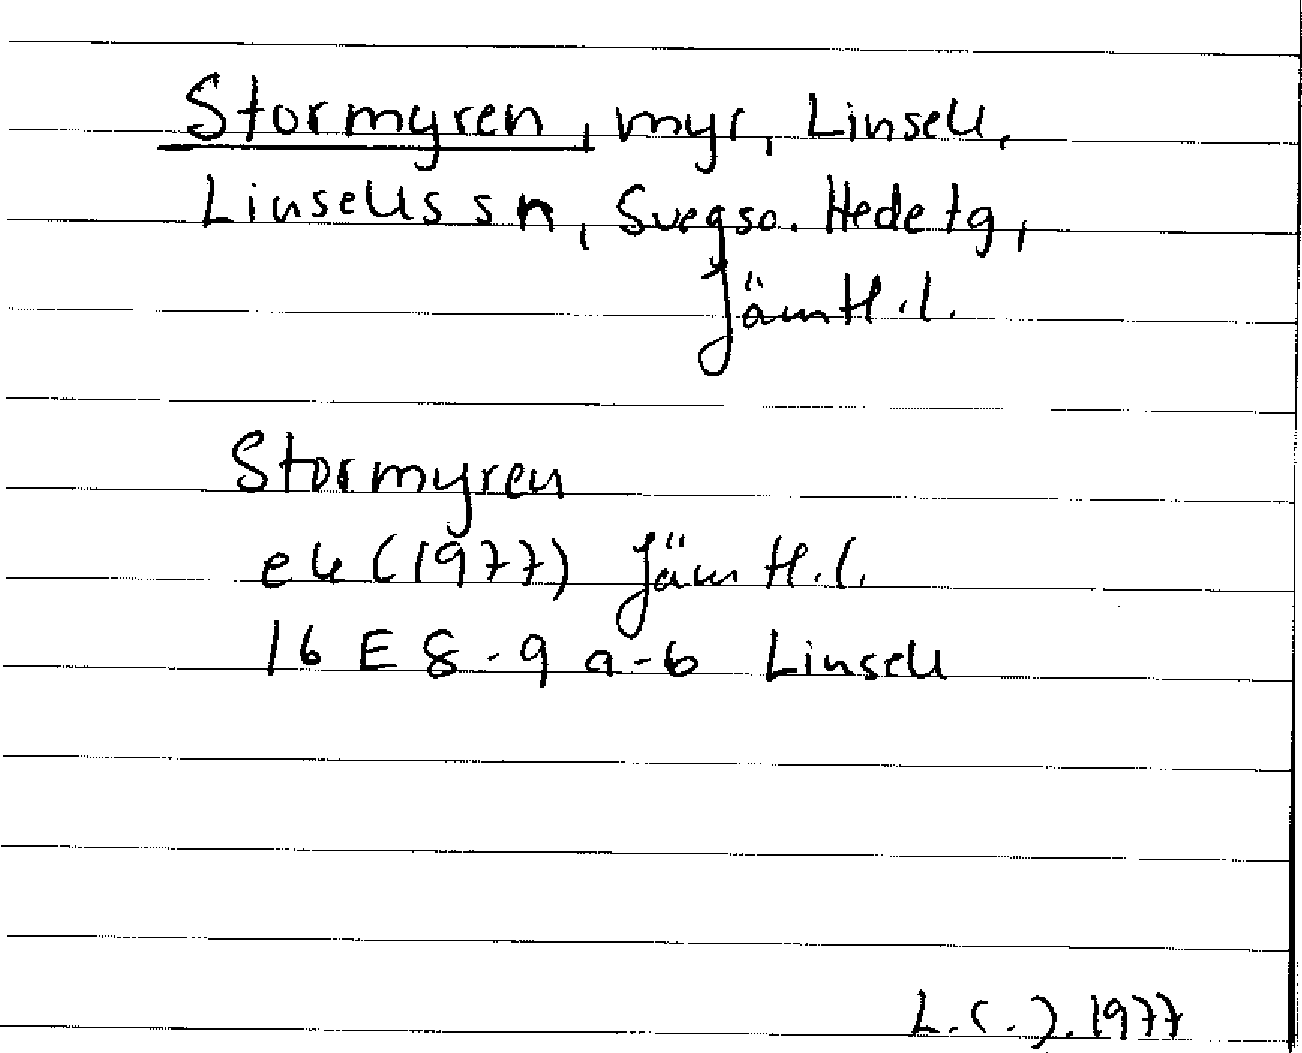 Stormyren, myr, Linsell,
Linsells sn, Svegs o. Hede tg,
Jämtl. l.
Stormyren
ek (1977) Jämtl. l.
16 E 8-9 a-b Linsell
1977